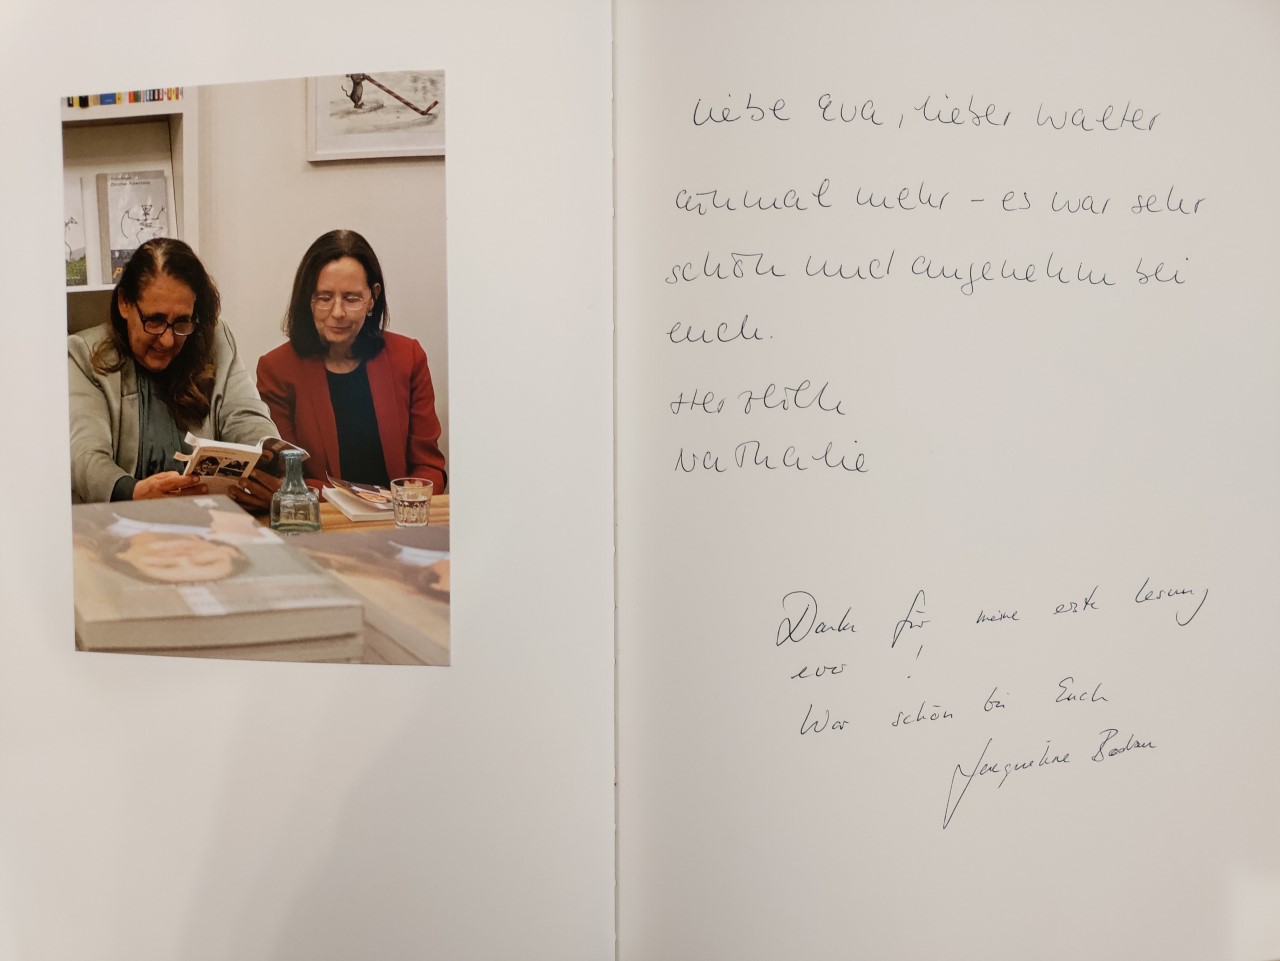 Liebe Eva, lieber Walter
einmal mehr – es war sehr
schön und angenehm bei
euch.
Herzlich
Nathalie
Danke für meine erste Lesung
ever!
War schön bei Euch
Jacqueline